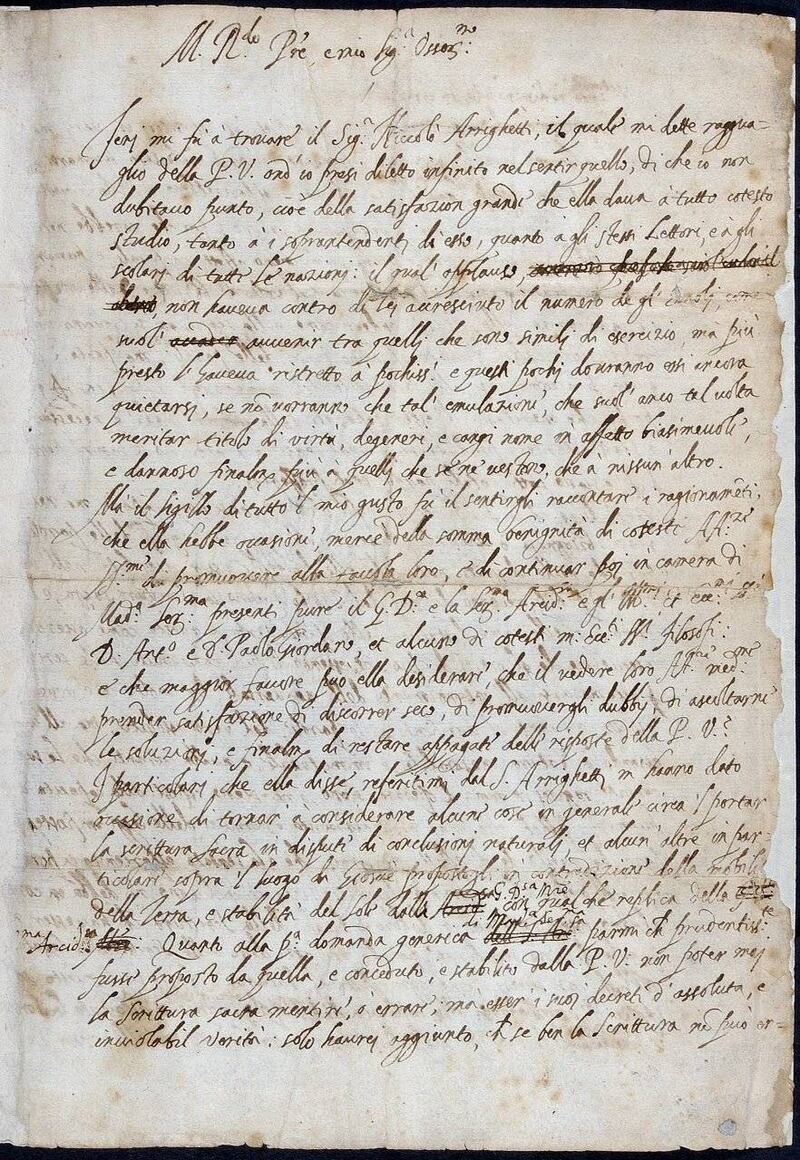 M. R.do P're, e mio Sig.r Osser.mo
Ierj mi fù à trovare il Sig.r Niccolò Arrighetti, il quale mi dette raggua-
glio della P. V. ond' io presi diletto infinito nel sentir quello, di che io non
dubitavo punto, cioè della satisfazion grande che ella dava à tutto cotesto
studio, tanto à i soprintendenti di esso, quanto à gli stessi lettori, e à gli
scolari di tutte le nazioni: il qual' applauso
non haveva contro di lej accresciuto il numero de gl' emolj, come
suol' accader avvenir tra quelli che sono similj di esercizio, ma più
presto l' haveva ristretto à pochiss.i e questi pochj dovranno essi ancora
quietarsi, se nõ vorranno che tal' emulazione, che suol' anco tal volta
meritar titolo di virtù, degeneri, e cangi nome in affetto biasimevole,
e dannoso finalm.e più à quelli che se ne vestono, che à nissun' altro.
Mà il sigillo di tutto 'l mio gusto fù il sentirgli raccontare i ragionamẽti,
che ella hebbe occasione, mercè della somma benignità di coteste AA.ze
S.me di promuovere alla tavola loro, e di continuar poj in camera di
Mad.a Ser.ma presenti pure il G. D.a e la Ser.ma Arcid.a e gl' Ill.mi et ecc.mi SS.ri
D. Ant.o e D. Paolo Giordano, et alcuni di cotesti m. Ecc.ti SS.i filosofi:
e che maggior favore può ella desiderare, che il vedere loro AA.ze med.me
prender satisfazione di discorrer seco, di promuovergli dubbj, di ascoltarne
le soluzionj, e finalm.e di restare appagate delle risposte della P. V.?
I particolari, che ella disse, referitimi dal S. Arrighetti, m' hãno dato
occasione di tornar à considerare alcune cose in generale circa 'l portar
la scrittura sacra in dispute di conclusionj naturalj, et alcun' altre in par-
ticolare sopra 'l luogo di Giosuè propostogli in contradizione della mobilità
della Terra, e stabilità del Sole dalla G. D.sa M.re con qualche replica della
Ser.ma Arcid.sa Quanto alla p.a domanda generica di Mad.a Ser.ma parmi ch̃ prudentiss.te
fusse proposto da quella, e conceduto, e stabilito dalla P. V. non poter maj
la Scrittura sacra mentire, ò errare; ma esser i suoj decreti d' assoluta, e
inviolabil verità: solo haurej aggiunto, ch̃ se ben la Scrittura nõ può er-